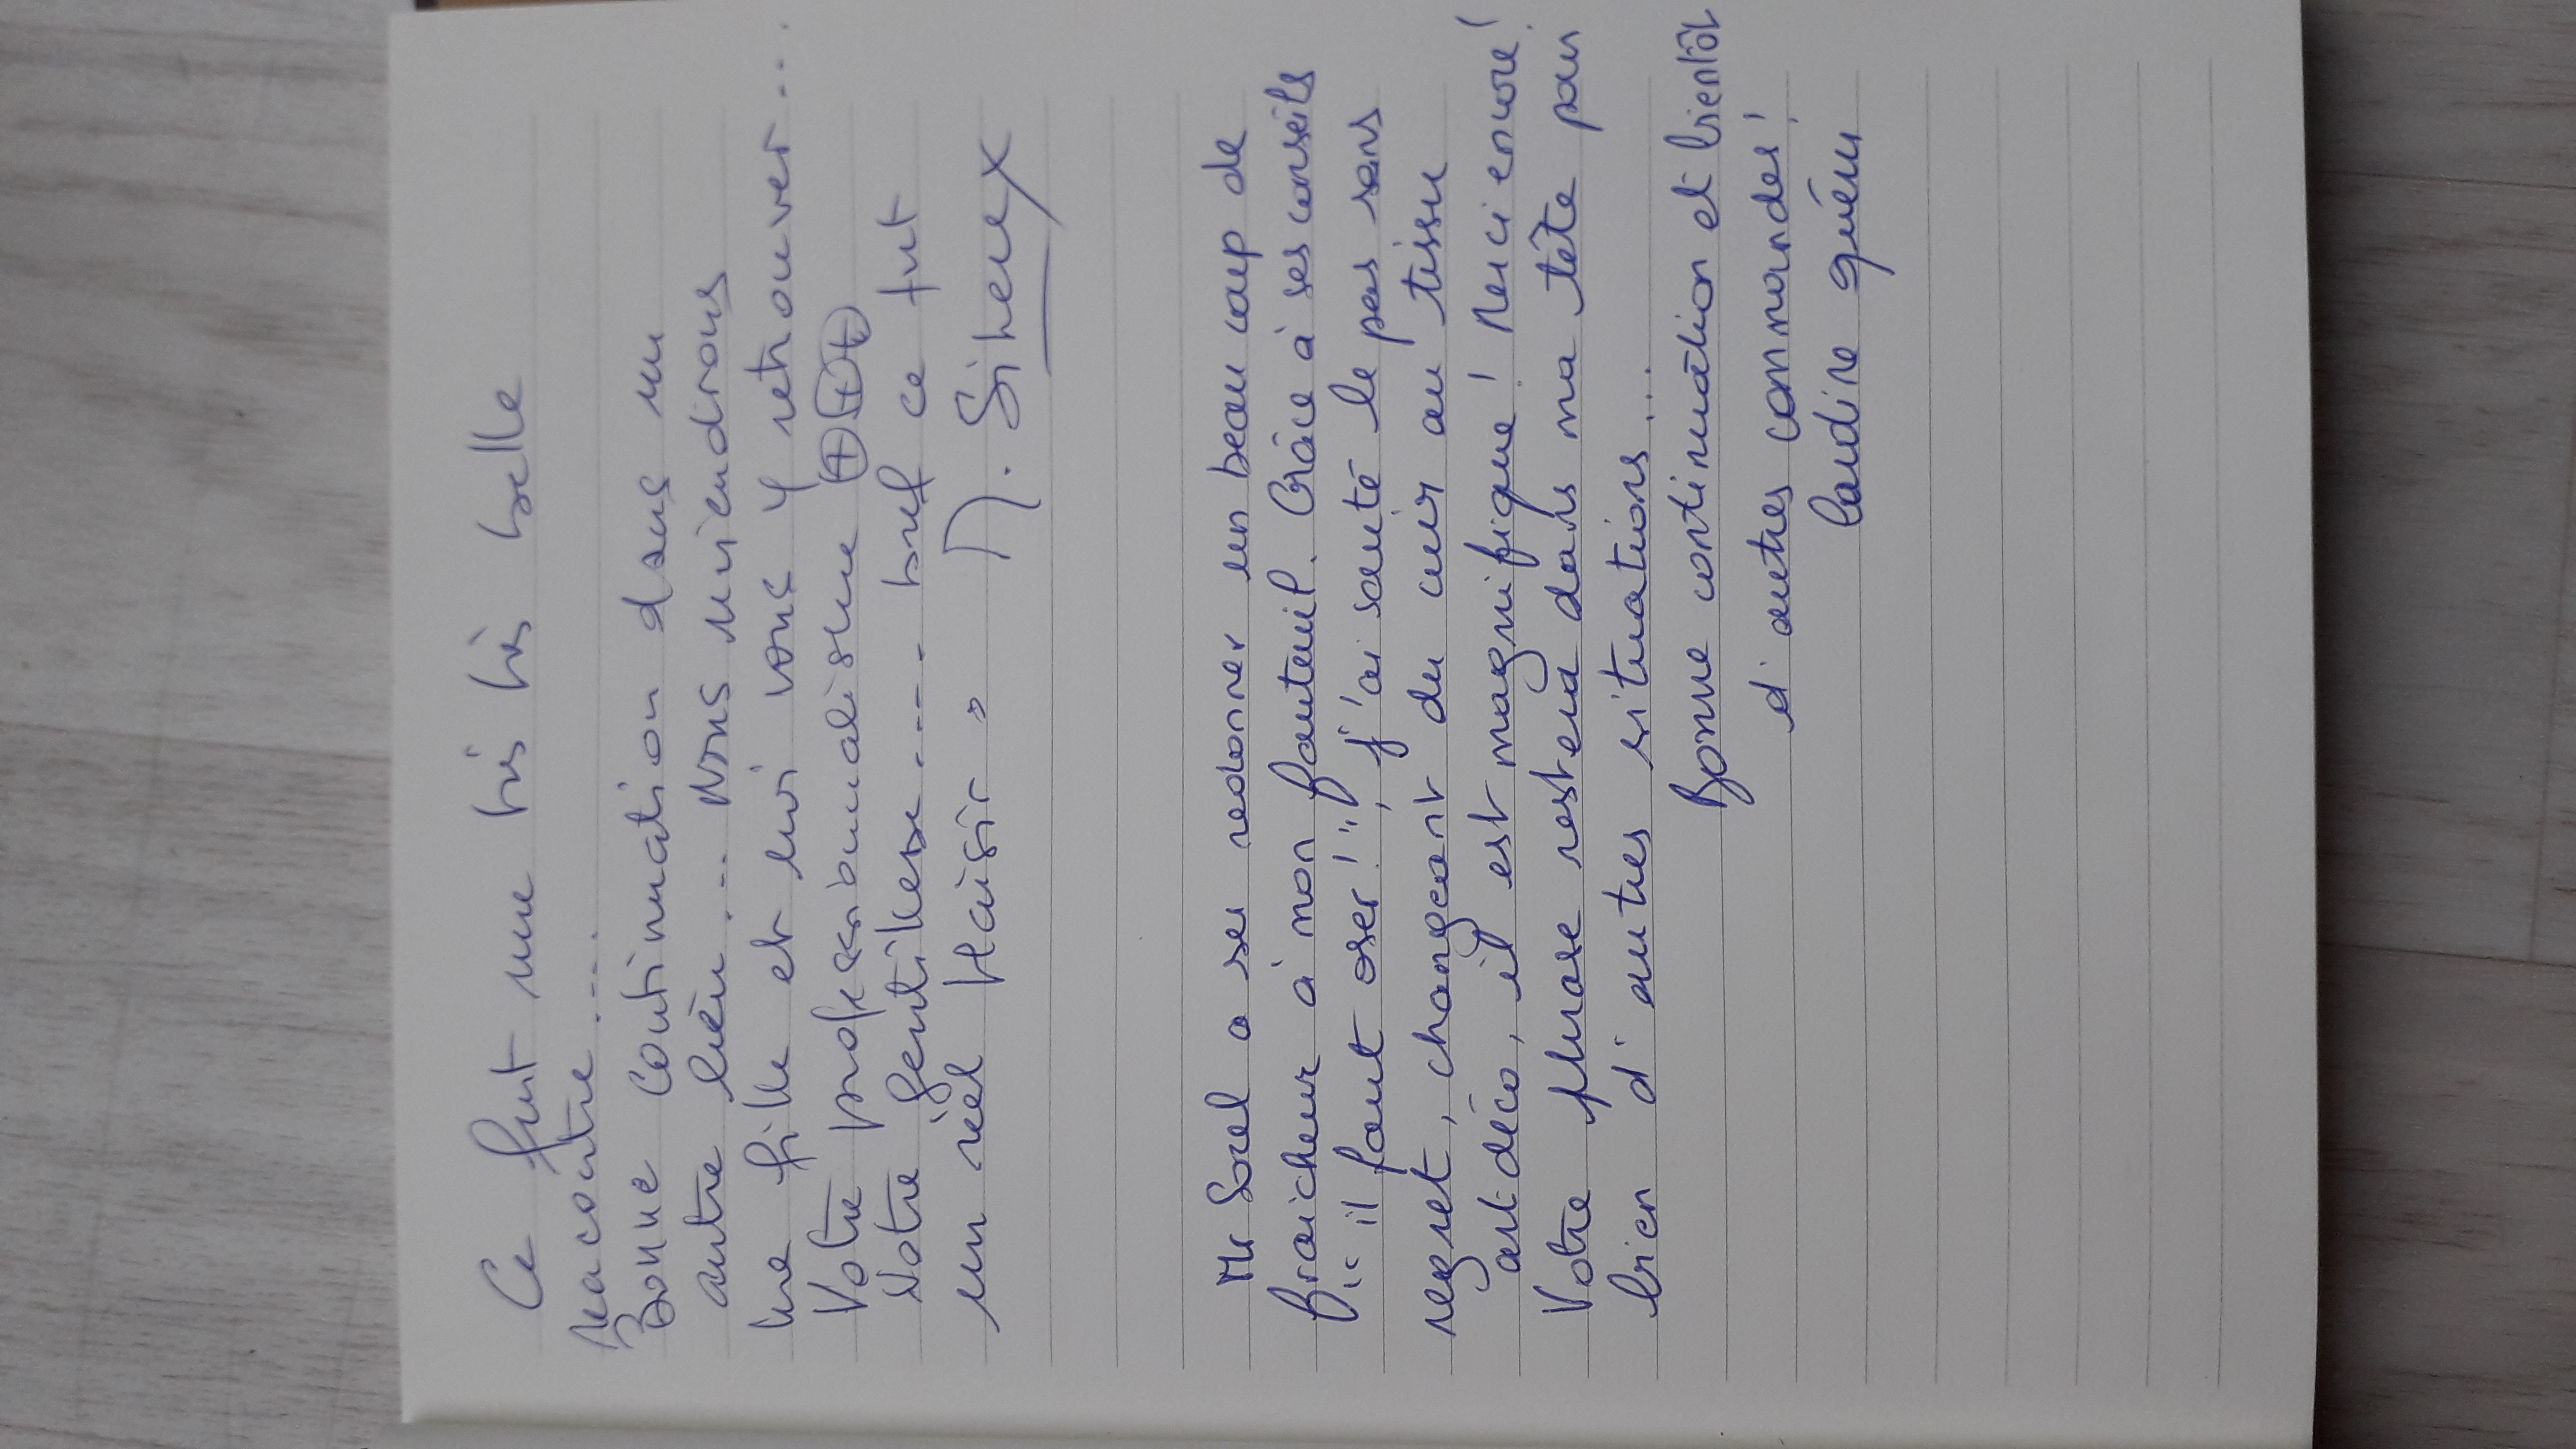 Ce fut une très très belle
rencontre....
Bonne continuation dans un
autre lieu... Nous viendrons
ma fille et moi vous y retrouver...
Votre professionnalisme +++
Votre gentillesse.... bref ce fut
un réel plaisir. M.
Mr Sorel a su redonner un beau coup de
fraicheur à mon fauteuil. Grâce à ses conseils
"il faut oser!", j'ai sauté le pas sans
regret, changeant du cuir au tissu
art-déco, il est magnifique! Merci encore!
Votre phrase restera dans ma tête pour
bien d'autres situations...
Bonne continuation et bientôt
d'autres commandes!